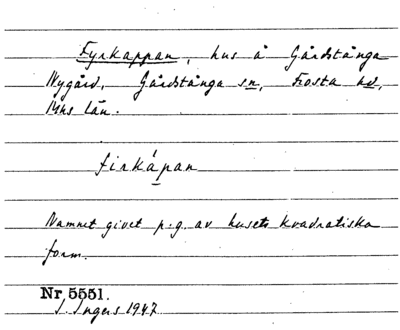 Fyrkappan, hus å Gårdstånga
Nygård, Gårdstånga sn, Frosta hd,
Mhs län.
firkápan
Namnet givet p.g. av husets kvadratiska
form.
Nr 5551.
I. Ingers 1947